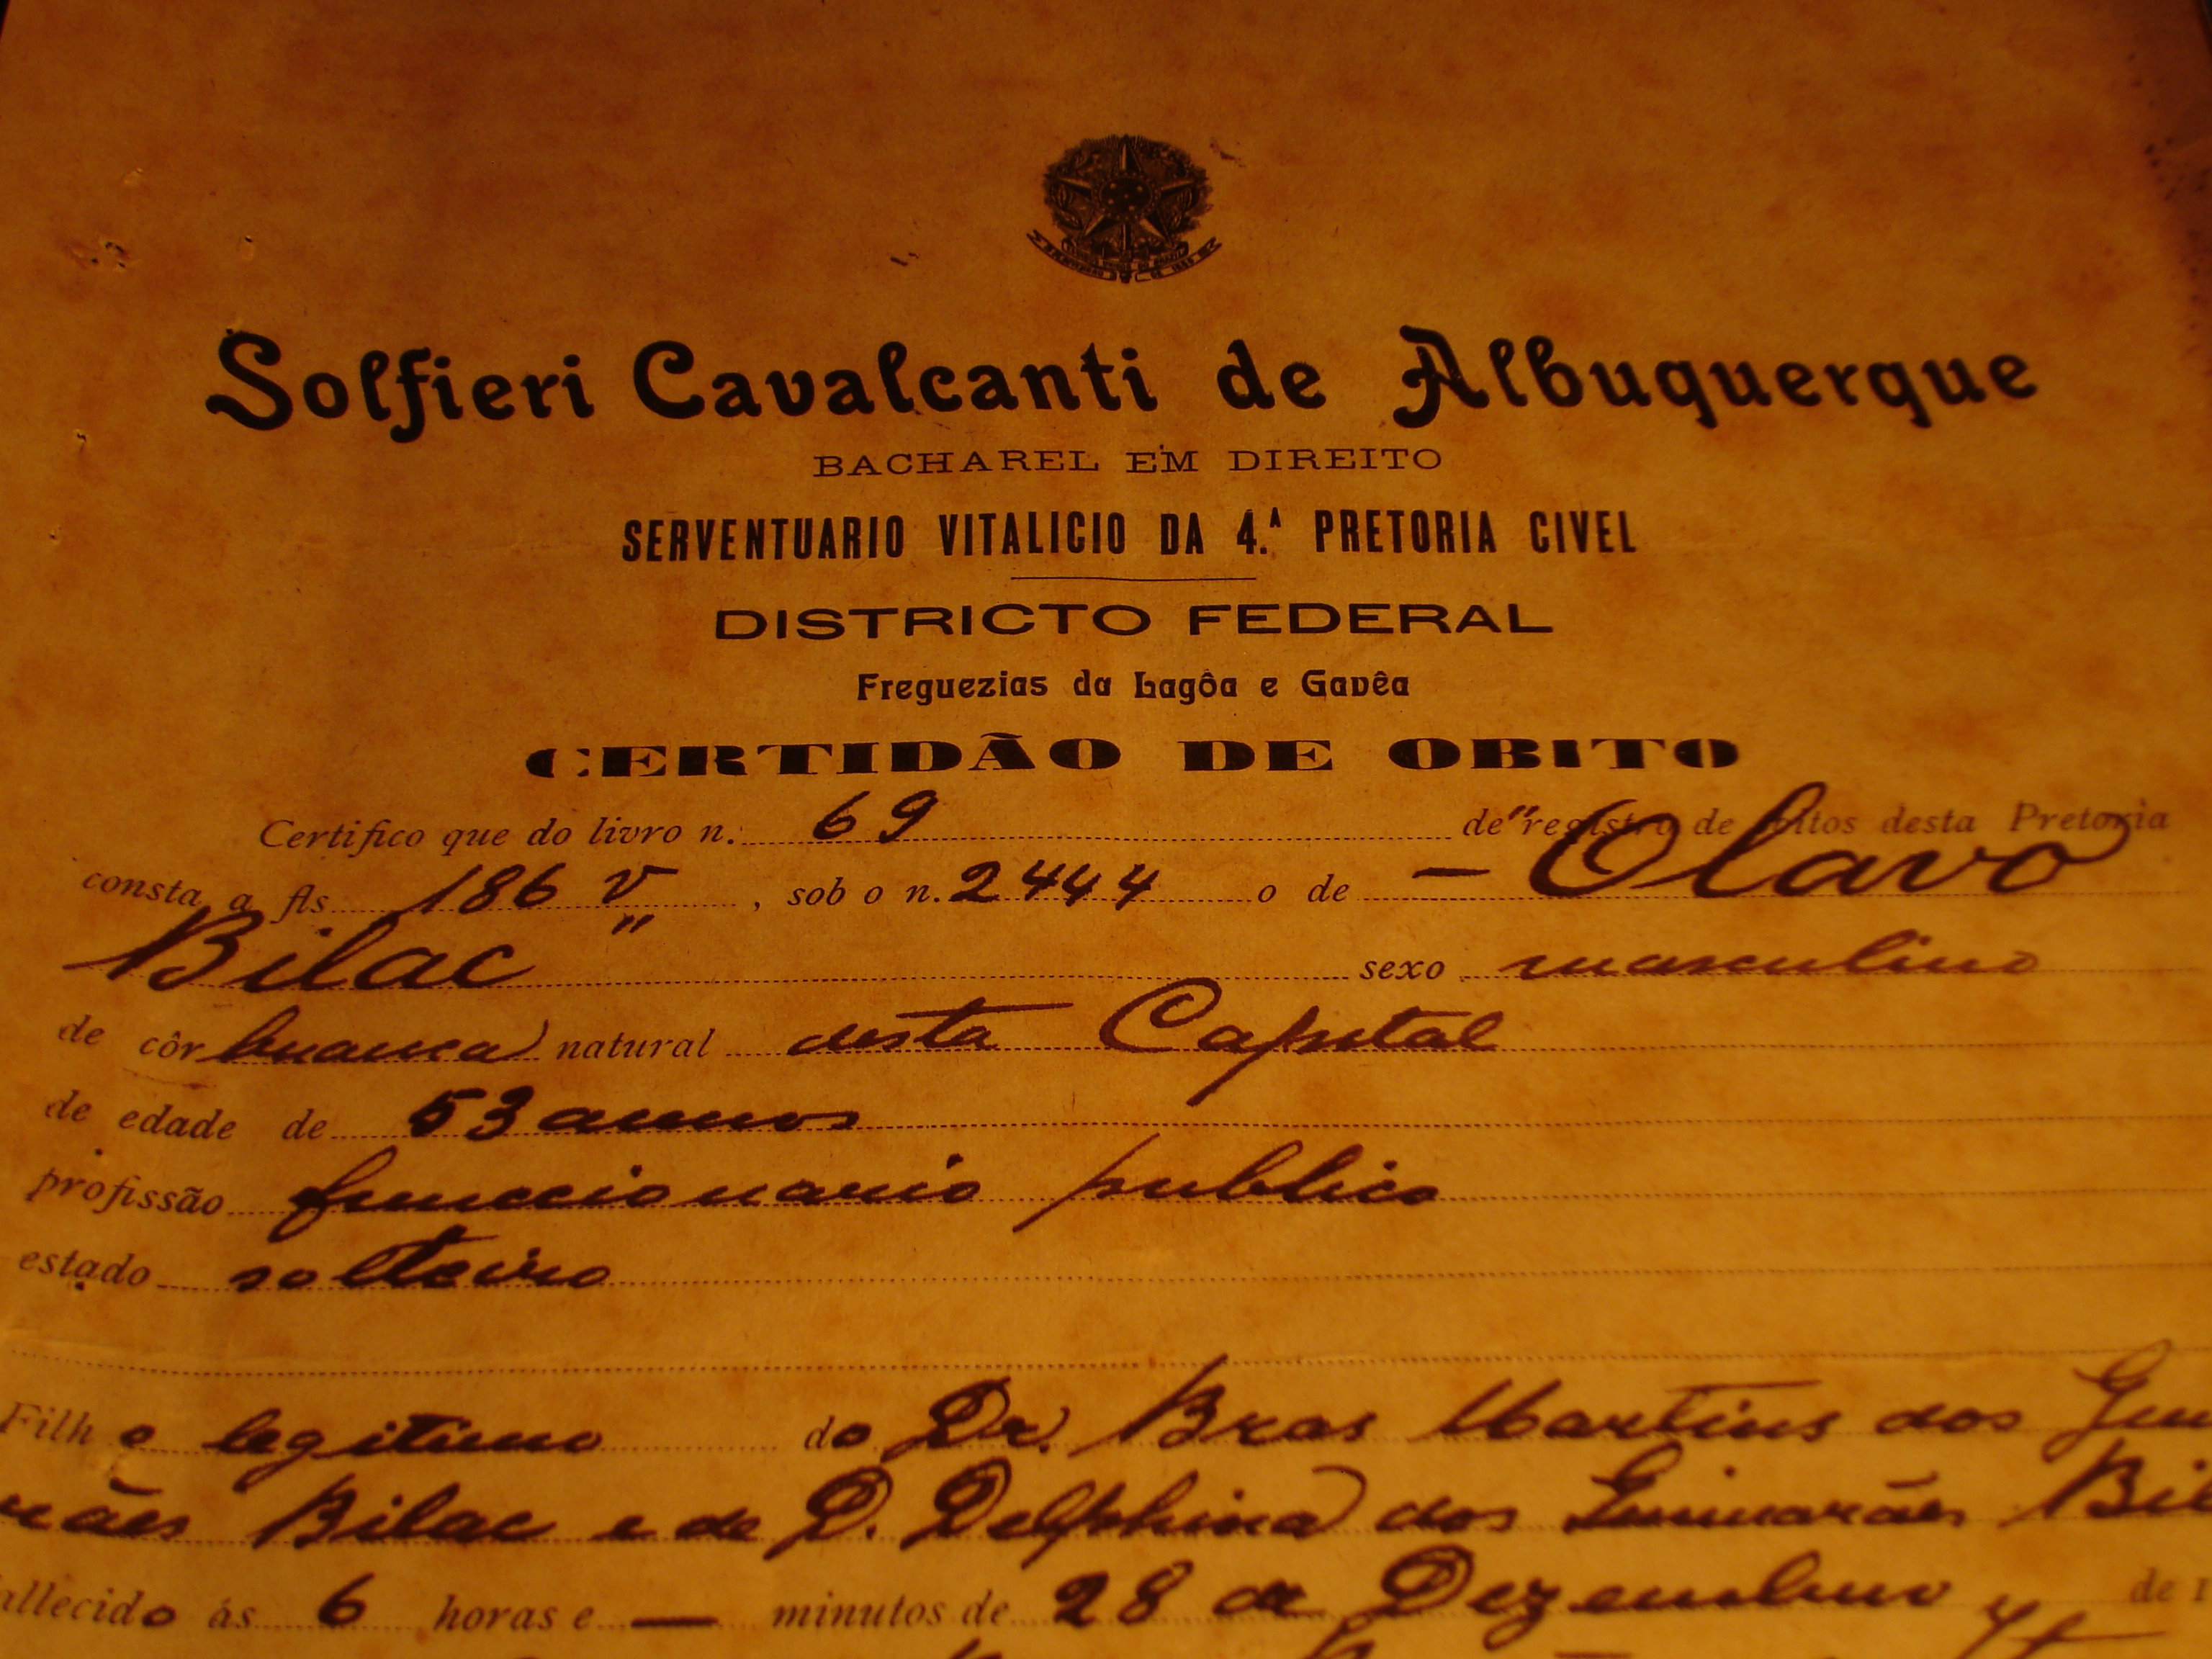 Solfieri Cavalcanti de Albuquerque
BACHAREL EM DIREITO
SERVENTUARIO VITALICIO DA 4.ª PRETORIA CIVEL
DISTRICTO FEDERAL
Freguezias da Lagôa e Gavêa
CERTIDÃO DE OBITO
Certifico que do livro n. 69 de registro de obitos desta Pretoria
consta a fls 186 v, sob o n. 2444 o de — "Olavo
Bilac" sexo masculino
de côr branca natural desta Capital
de edade de 53 annos
profissão funccionario publico
estado solteiro
Filho legitimo do Dr. Bras Martins dos Gui
rães Bilac e de D. Delphina dos Guimarães Bil
allecido ás 6 horas e — minutos de 28 de Dezembro de 1